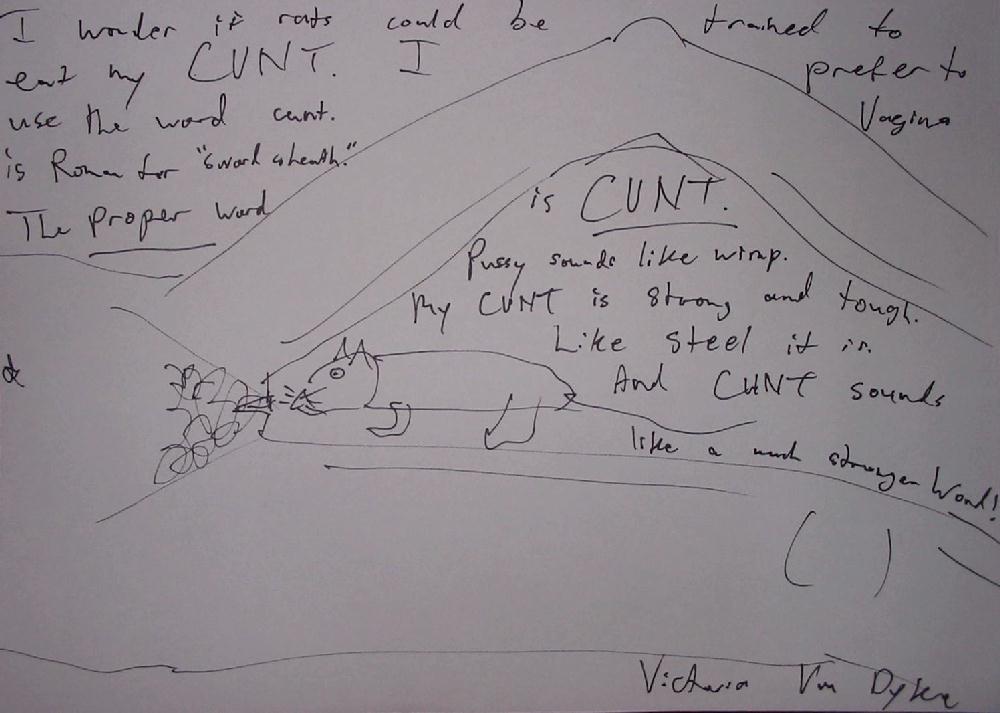 I wonder if rats could be trained to
eat my CUNT. I prefer to
use the word cunt. Vagina
is Roman for "sword sheath."
The proper word
is CUNT.
Pussy sounds like wimp.
My CUNT is strong and tough.
Like steel it is.
And CUNT sounds
like a much stronger word!
( )
Victoria Van Dyke